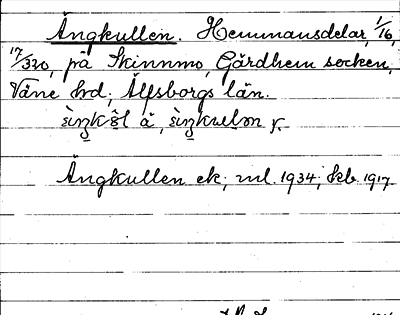 Ängkullen. Hemmansdelar, 1/16,
17/320, på Skinnmo, Gärdhem socken,
Väne hd, Älfsborgs län.
Ängkullen ek; ml. 1934; kb 1917